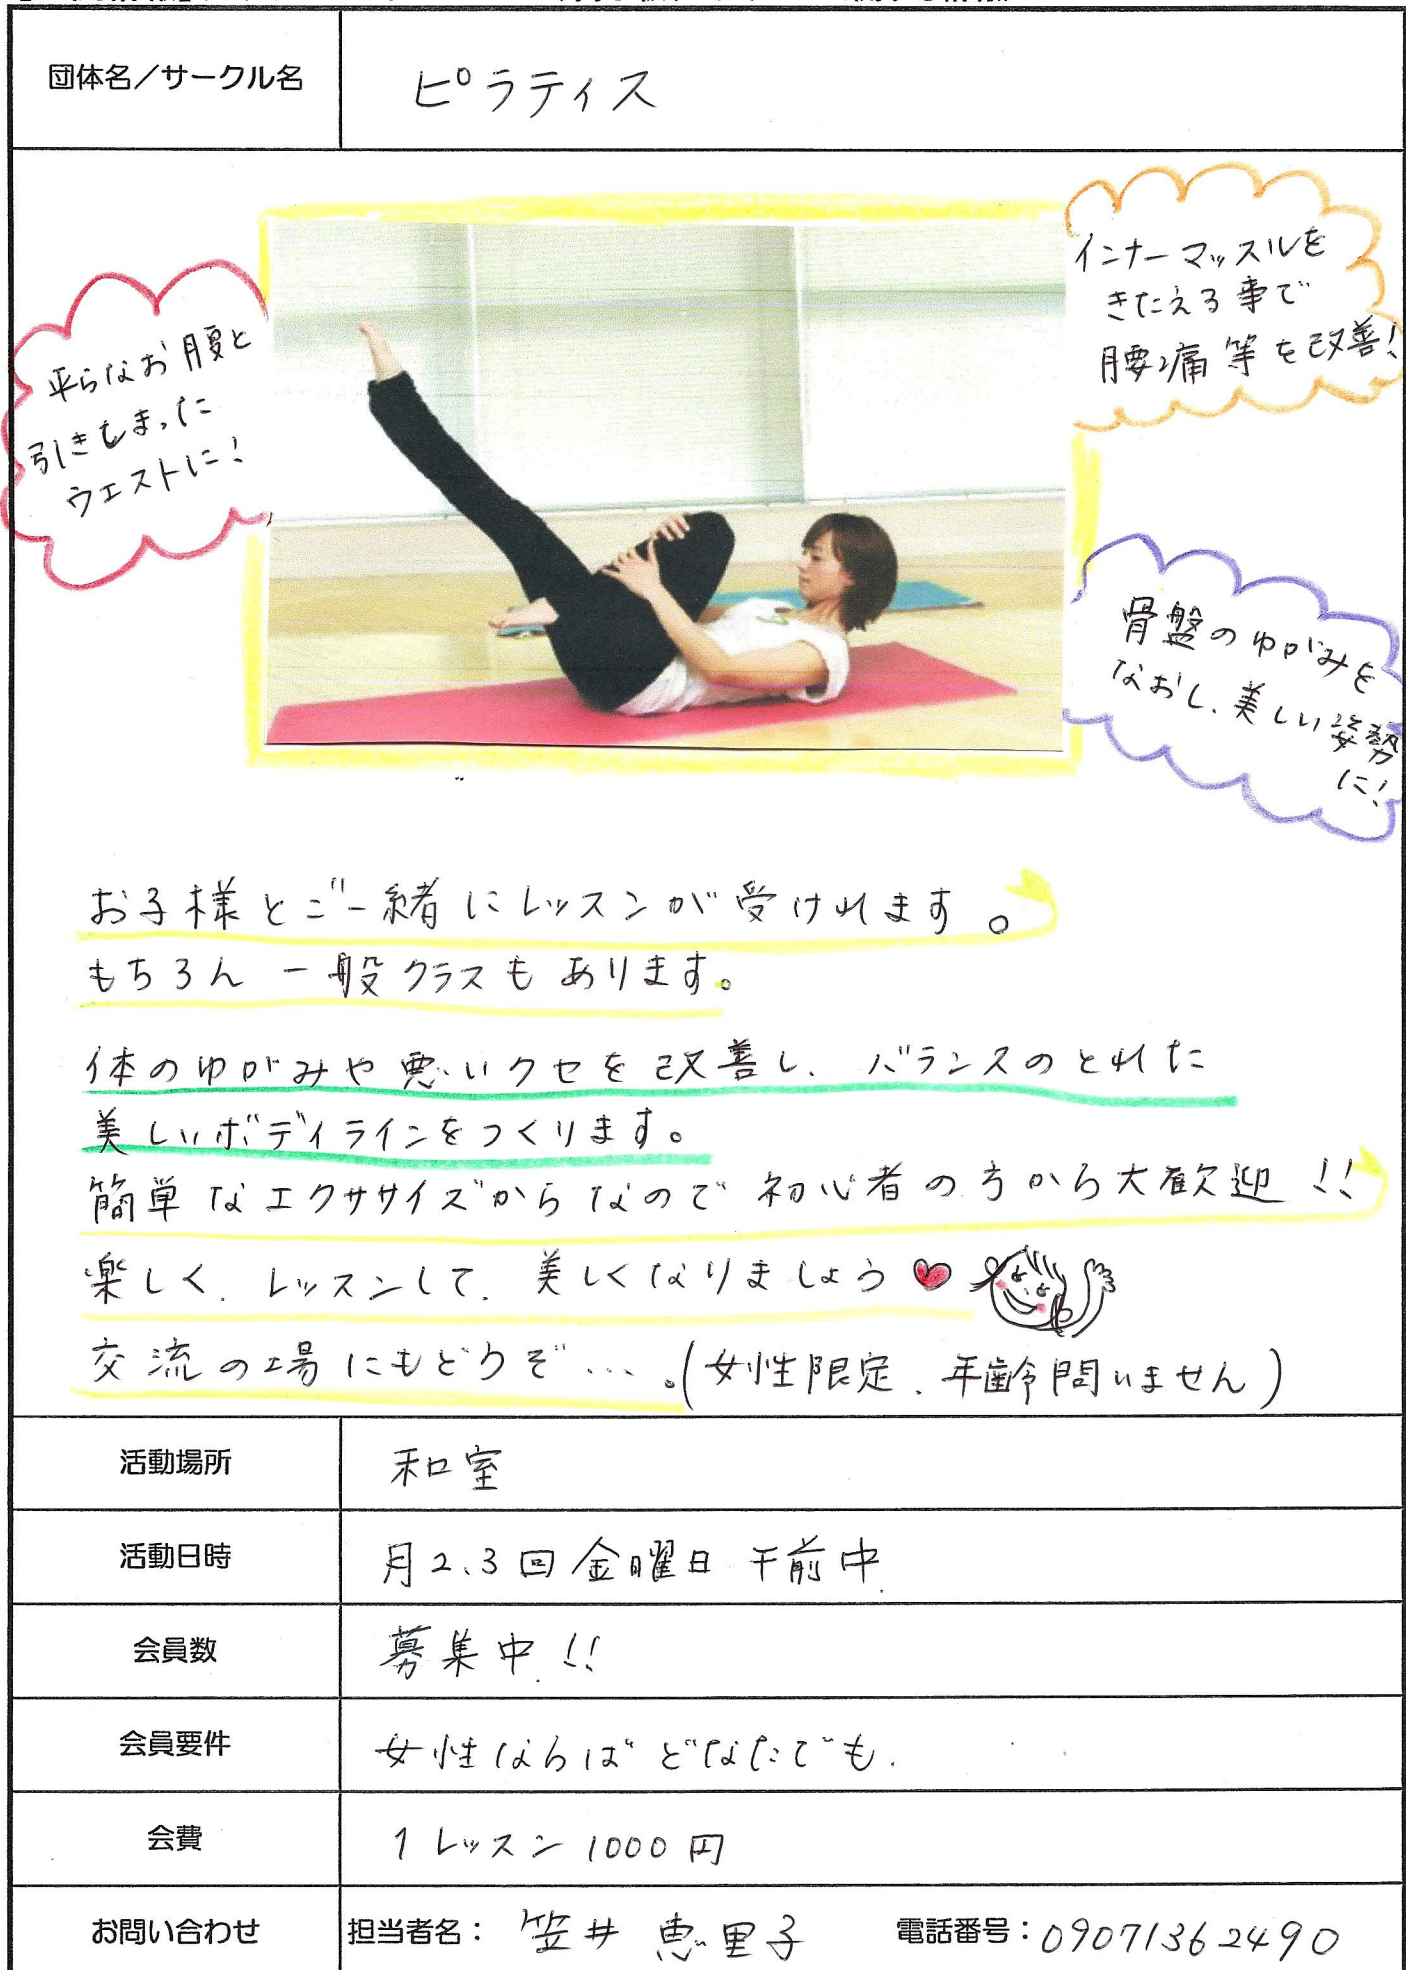 団体名／サークル名
ピラティス
平らなお腹と
引きしまった
ウエストに！
インナーマッスルを
きたえる事で
腰痛等を改善！
骨盤のゆがみを
なおし、美しい姿勢
に！
お子様とご一緒にレッスンが受けれます。
もちろん一般クラスもあります。
体のゆがみや悪いクセを改善し、バランスのとれた
美しいボディラインをつくります。
簡単なエクササイズからなので初心者の方から大歓迎！！
楽しく、レッスンして、美しくなりましょう♥
交流の場にもどうぞ…。(女性限定、年齢問いません)
活動場所
和室
活動日時
月2、3回 金曜日 午前中
会員数
募集中！！
会員要件
女性ならばどなたでも。
会費
1レッスン1000円
お問い合わせ
担当者名： 笠井 恵里子 電話番号：09071362490